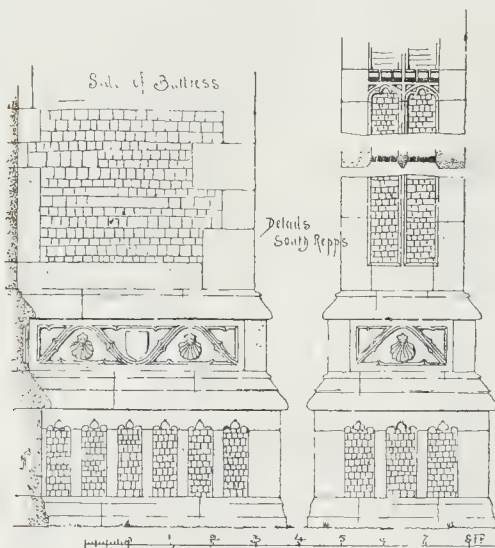 Side of Buttress
Details
South Repps
1 2 3 4 5 6 7 8 FT